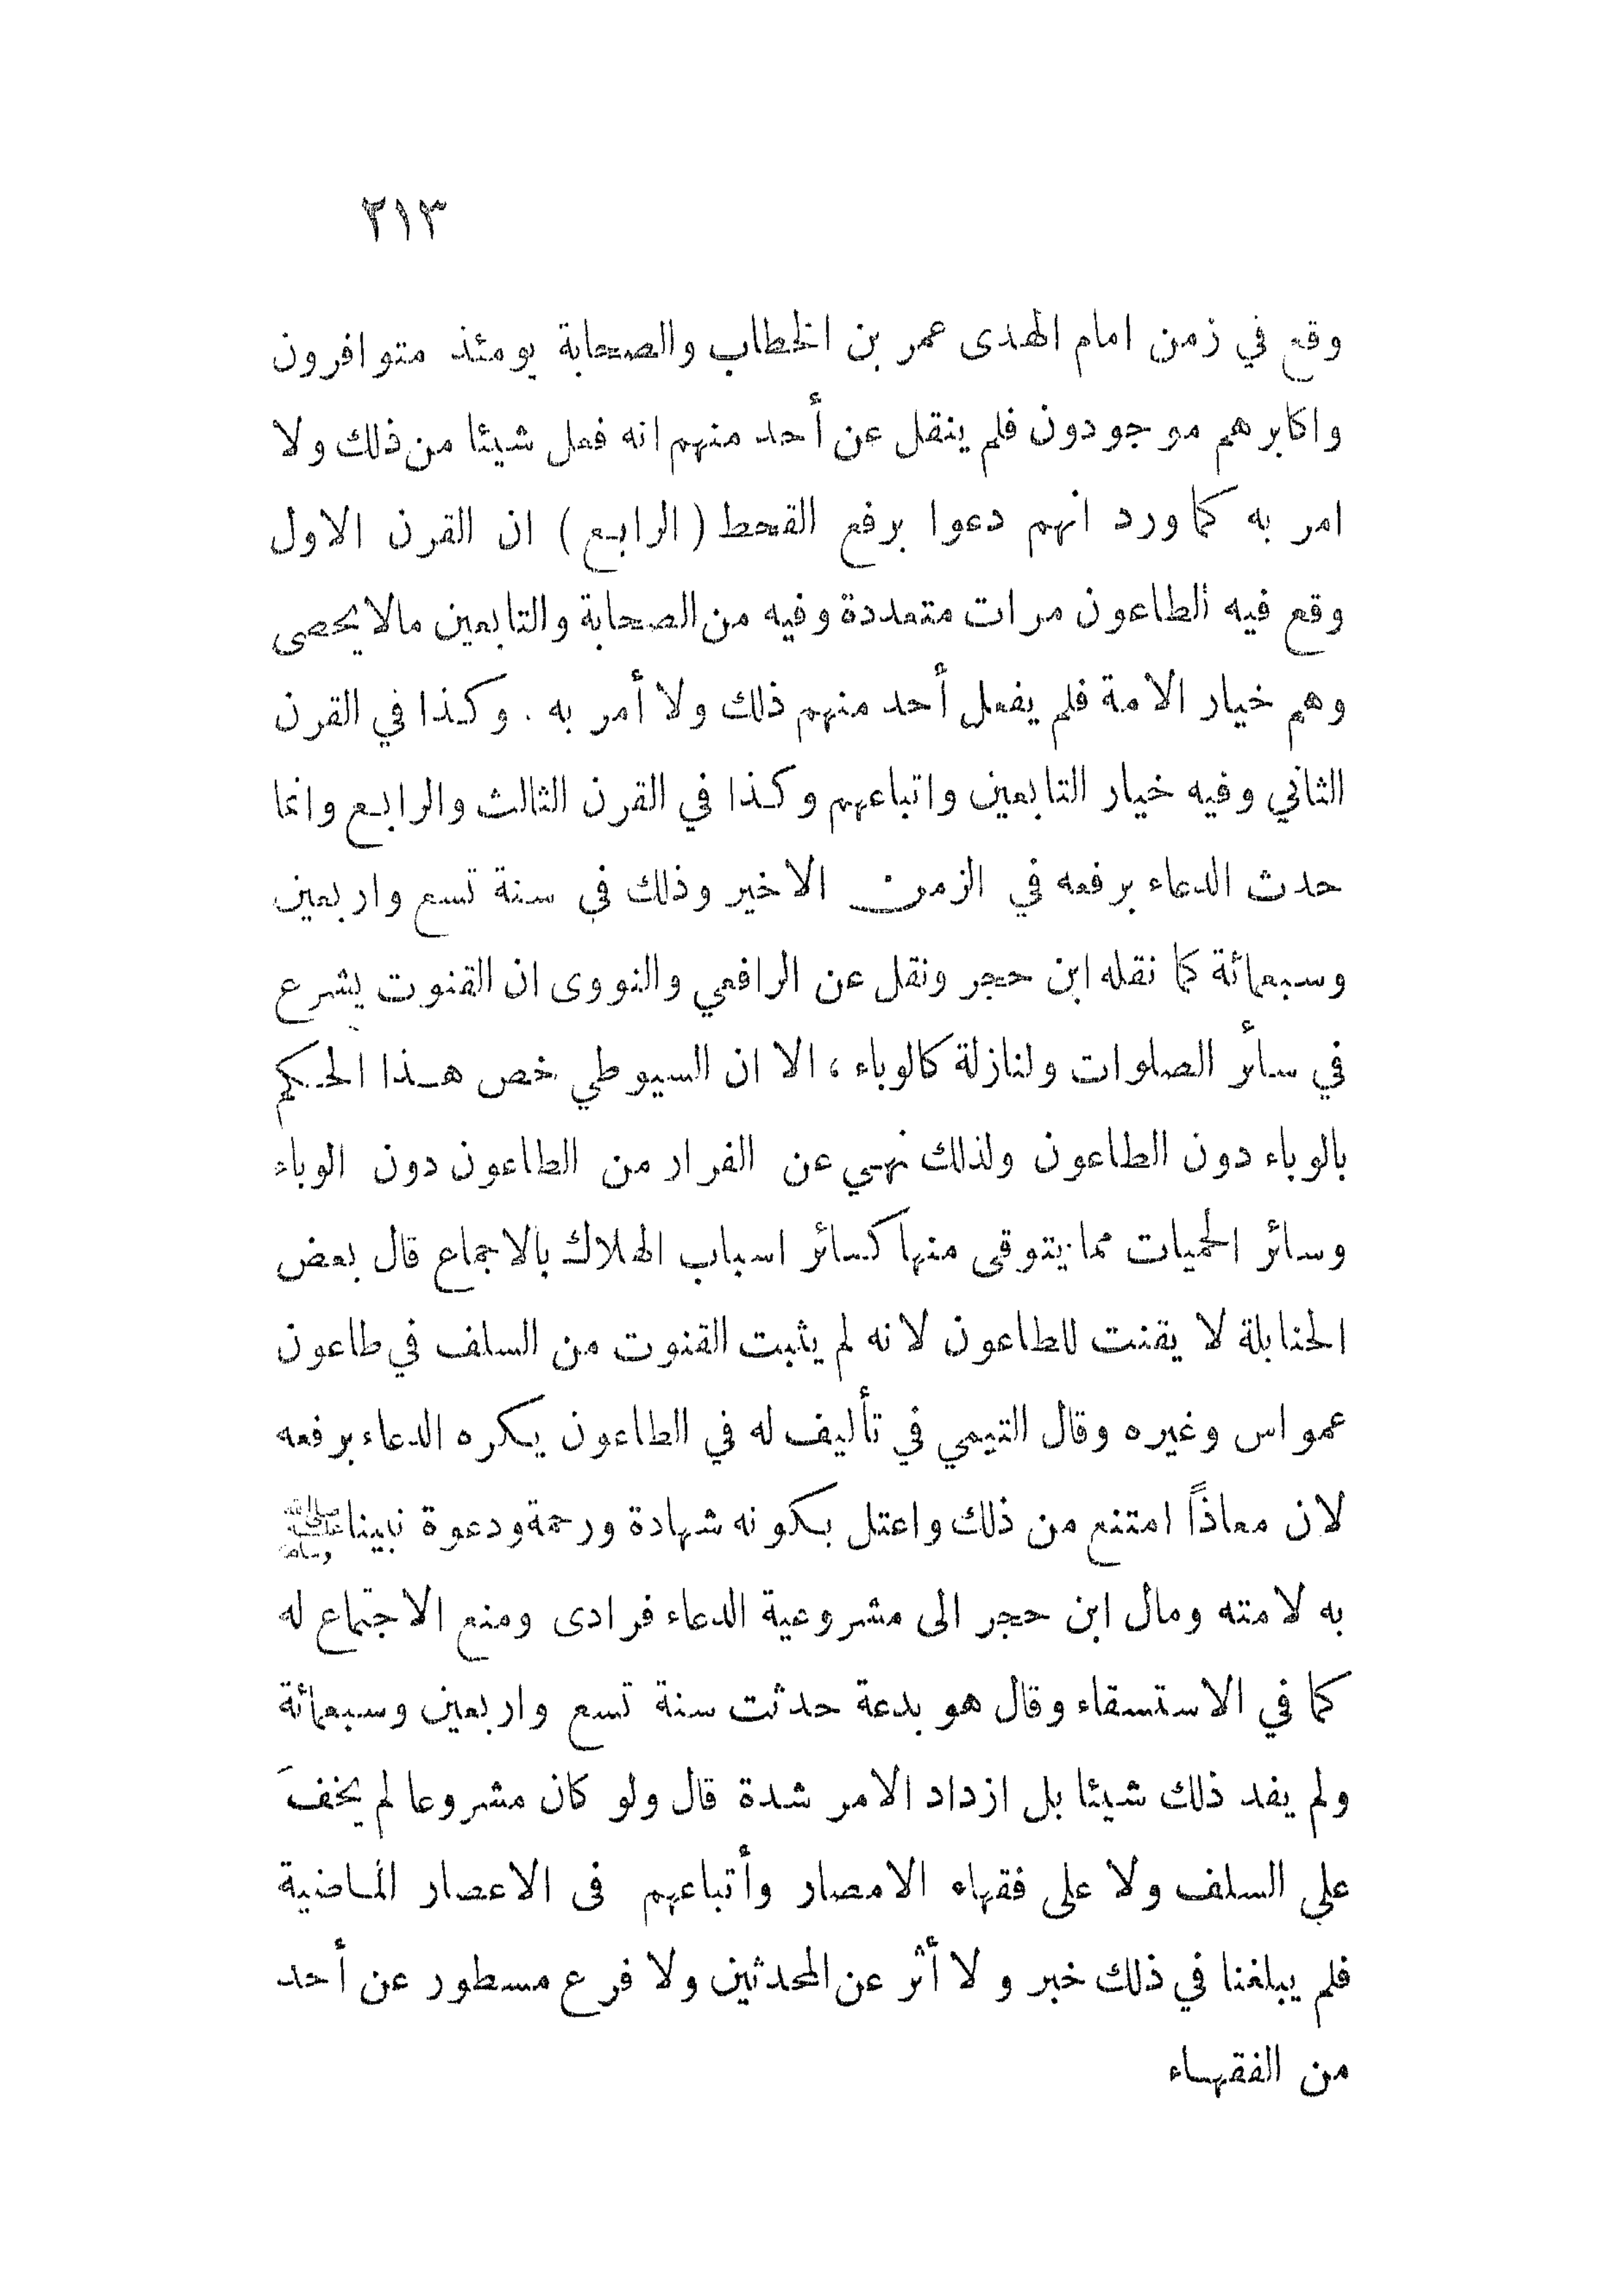 ٢١٣
وقع في زمن امام الهدى عمر بن الخطاب والصحابة يومئذ متوافرون
واكابرهم موجودون فلم ينقل عن أحد منهم انه فعل شيئا من ذلك ولا
امر به كما ورد انهم دعوا برفع القحط (الرابع) ان القرن الاول
وقع فيه الطاعون مرات متعددة وفيه من الصحابة والتابعين مالا يحصى
وهم خيار الامة فلم يفعل أحد منهم ذلك ولا أمر به . وكذا في القرن
الثاني وفيه خيار التابعين واتباعهم وكذا في القرن الثالث والرابع وانما
حدث الدعاء برفعه في الزمن الاخير وذلك في سنة تسع واربعين
وسبعمائة كما نقله ابن حجر ونقل عن الرافعي والنووى ان القنوت يشرع
في سائر الصلوات ولنازلة كالوباء ، الا ان السيوطي خص هذا الحكم
بالوباء دون الطاعون ولذلك نهي عن الفرار من الطاعون دون الوباء
وسائر الحميات مما يتوقى منها كسائر اسباب الهلاك بالاجماع قال بعض
الحنابلة لا يقنت للطاعون لانه لم يثبت القنوت من السلف في طاعون
عمواس وغيره وقال التيمي في تأليف له في الطاعون يكره الدعاء برفعه
لان معاذاً امتنع من ذلك واعتل بكونه شهادة ورحمة ودعوة نبينا ﷺ
به لامته ومال ابن حجر الى مشروعية الدعاء فرادى ومنع الاجتماع له
كما في الاستسقاء وقال هو بدعة حدثت سنة تسع واربعين وسبعمائة
ولم يفد ذلك شيئا بل ازداد الامر شدة قال ولو كان مشروعا لم يخفَ
على السلف ولا على فقهاء الامصار وأتباعهم فى الاعصار الماضية
فلم يبلغنا في ذلك خبر ولا أثر عن المحدثين ولا فرع مسطور عن أحد
من الفقهاء